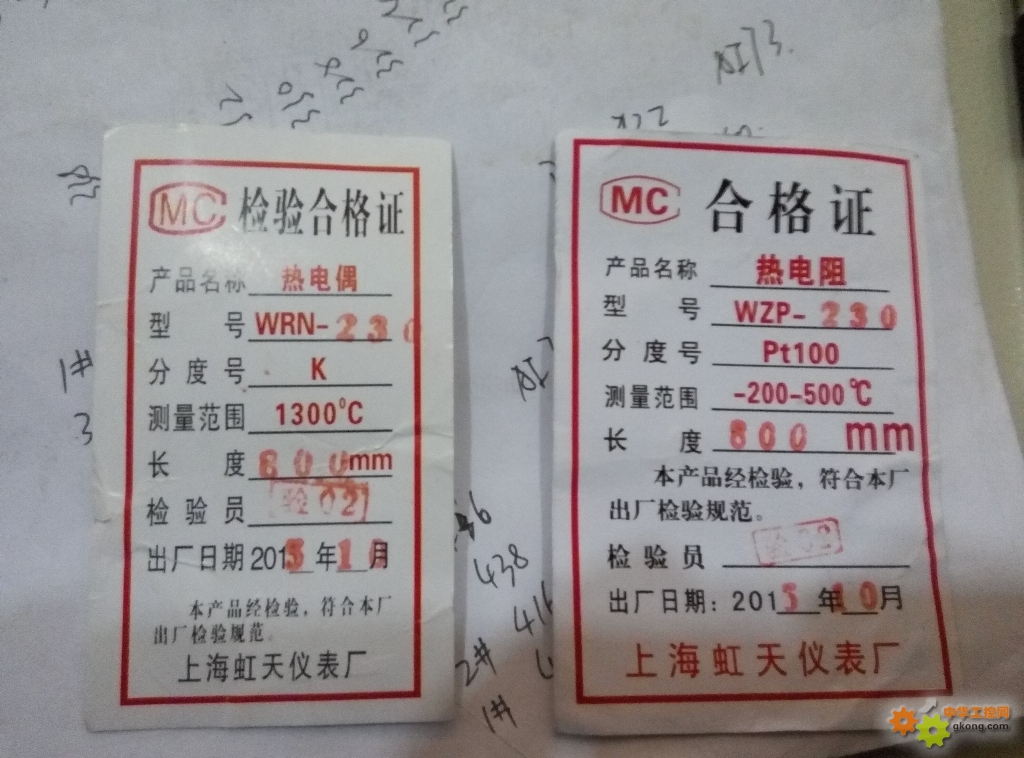 MC 检验合格证
产品名称 热电偶
型 号 WRN-230
分度号 K
测量范围 1300°C
长 度 600mm
检验员 验02
出厂日期 2015年10月
本产品经检验，符合本厂
出厂检验规范。
上海虹天仪表厂
MC 合格证
产品名称 热电阻
型 号 WZP-230
分度号 Pt100
测量范围 -200-500℃
长 度 600 mm
本产品经检验，符合本厂
出厂检验规范。
检验员 验02
出厂日期：2015年10月
上海虹天仪表厂
AI73.
1#
3
438
416
2#
1#
中华工控网
gkong.com